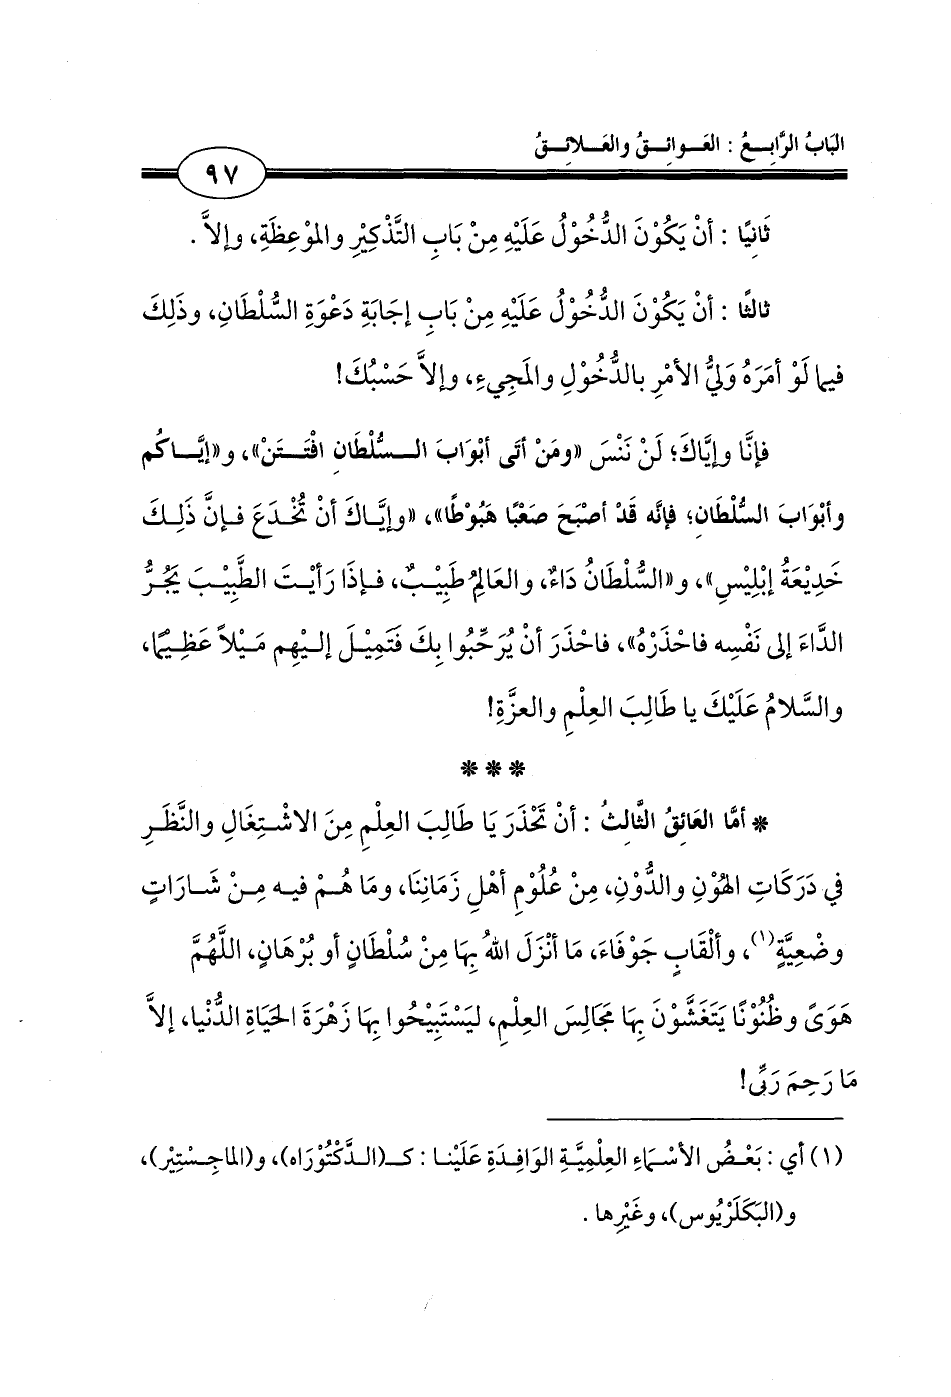 البَابُ الرَّابِعُ : العَوائِقُ والعَلائِقُ
٩٧
ثَانِيًا : أنْ يَكُوْنَ الدُّخُوْلُ عَلَيْهِ مِنْ بَابِ التَّذْكِيْرِ والمَوْعِظَةِ، وإلاَّ .
ثالثًا : أنْ يَكُوْنَ الدُّخُوْلُ عَلَيْهِ مِنْ بَابِ إجَابَةِ دَعْوَةِ السُّلْطَانِ، وذَلِكَ
فيما لَوْ أمَرَهُ وَليُّ الأمْرِ بالدُّخُوْلِ والمَجِيءِ، وإلاَّ حَسْبُكَ!
فإنَّا وإيَّاكَ؛ لَنْ نَنْسَ «ومَنْ أتَى أبْوَابَ السُّلْطَانِ افْتَتَنْ»، و«إيَّاكُم
وأبْوَابَ السُّلْطَانِ؛ فإنَّه قَدْ أصْبَحَ صَعْبًا هَبُوْطًا»، «وإيَّاكَ أنْ تُخْدَعَ فإنَّ ذَلِكَ
خَدِيْعَةُ إبْلِيْسِ»، و«السُّلْطَانُ دَاءٌ، والعَالِمُ طَبِيْبٌ، فإذَا رَأيْتَ الطَّبِيْبَ يَجُرُّ
الدَّاءَ إلى نَفْسِه فاحْذَرْهُ»، فاحْذَرَ أنْ يُرَحِّبُوا بِكَ فَتَمِيْلَ إلَيْهِم مَيْلاً عَظِيْمًا،
والسَّلامُ عَلَيْكَ يا طَالِبَ العِلْمِ والعزَّةِ!
* * *
* أمَّا العَائِقُ الثَّالِثُ : أنْ تَحْذَرَ يَا طَالِبَ العِلْمِ مِنَ الاشْتِغَالِ والنَّظَرِ
في دَرَكَاتِ الهُوْنِ والدُّوْنِ، مِنْ عُلُوْمِ أهْلِ زَمَانِنَا، ومَا هُمْ فيه مِنْ شَارَاتٍ
وضْعِيَّةٍ(١)، وألْقَابٍ جَوْفَاءَ، مَا أنْزَلَ اللهُ بِهَا مِنْ سُلْطَانٍ أو بُرْهَانٍ، اللَّهُمَّ
هَوَىً وظُنُوْنًا يَتَغَشَّوْنَ بِهَا مَجَالِسَ العِلْمِ، ليَسْتَبِيْحُوا بِهَا زَهْرَةَ الحَيَاةِ الدُّنْيا، إلاَّ
مَا رَحِمَ رَبِّي!
(١) أي : بَعْضُ الأسْمَاءِ العِلْمِيَّةِ الوَافِدَةِ عَلَيْنا : كـ(الدَّكْتُوْرَاه)، و(الماجِسْتِيْر)،
و(البَكَلَرْيُوس)، وغَيْرِها .